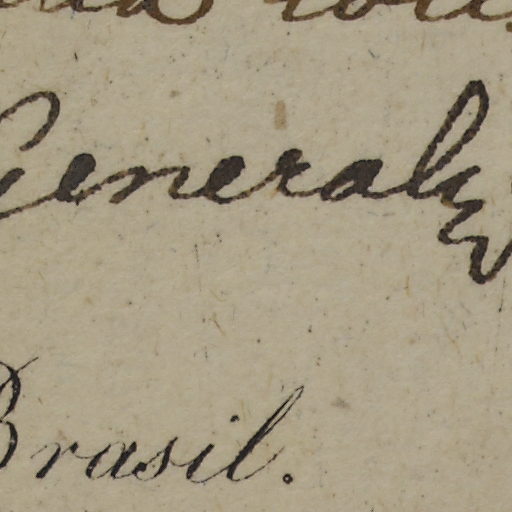 General
Brasil.